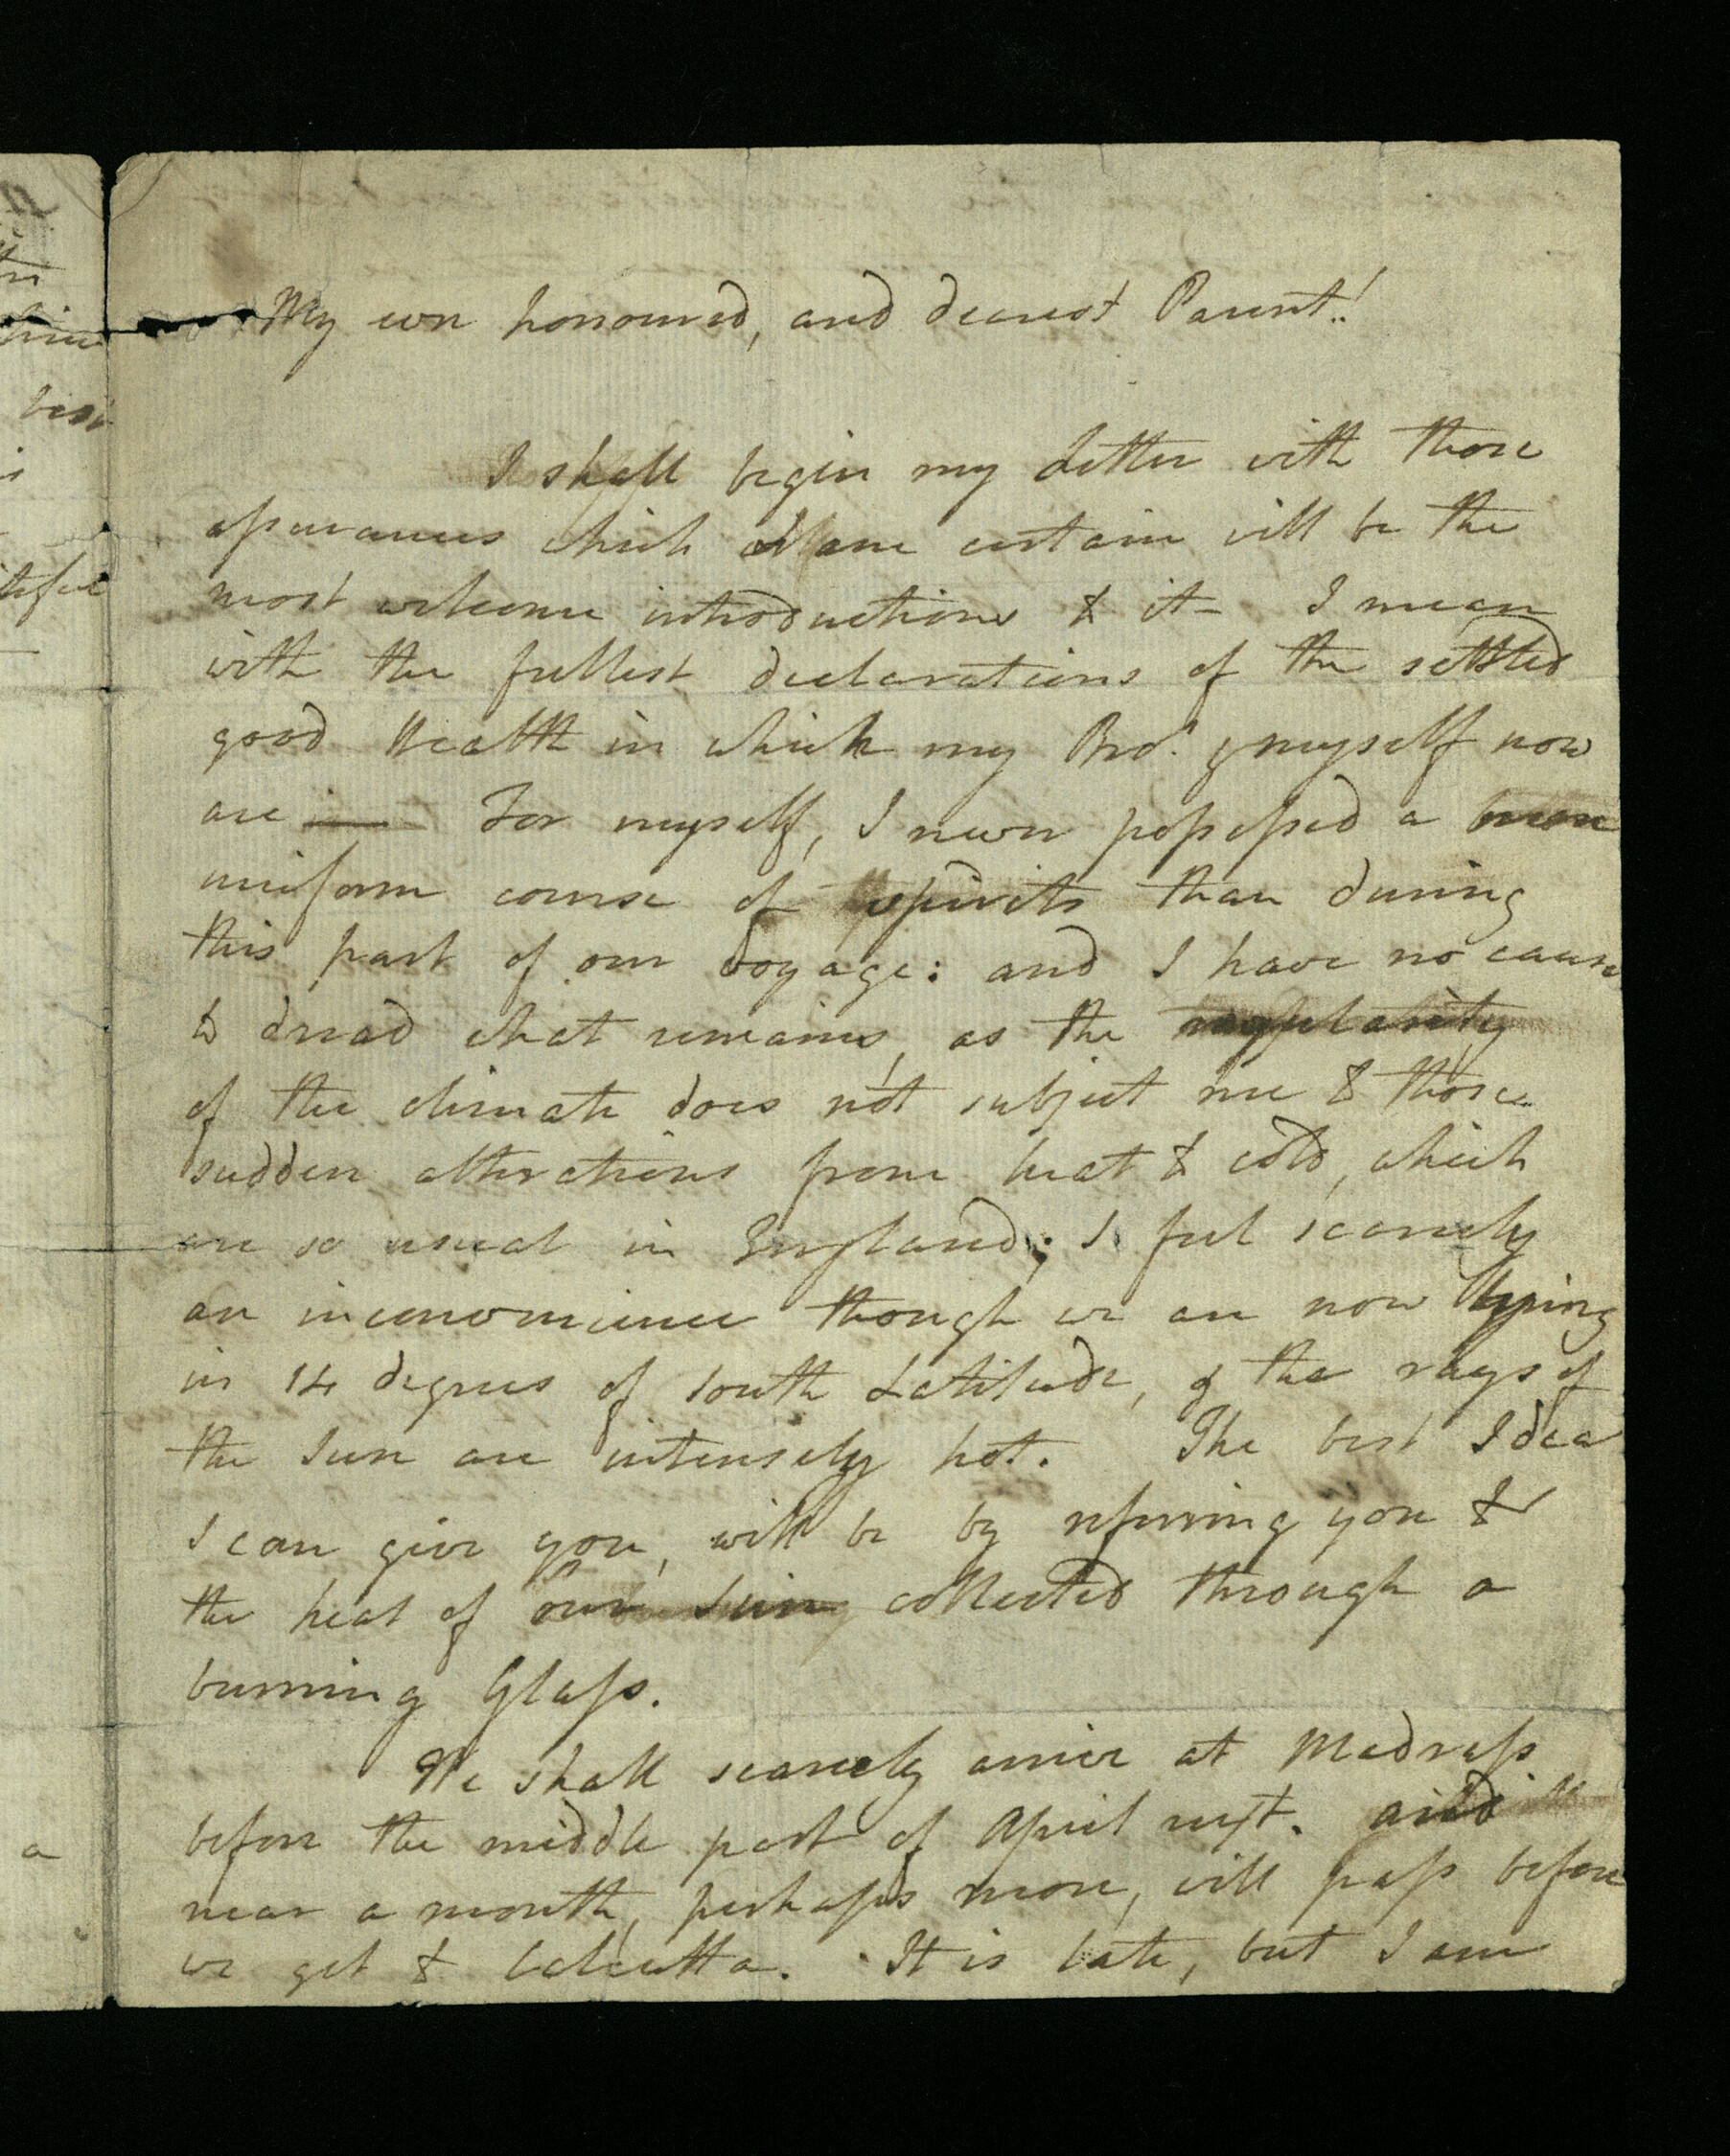 My ever honoured, and dearest Parent!
I shall begin my Letter with those
assurances which I am certain will be the
most welcome introductions to it – I mean
with the fullest declarations of the settled
good Health in which my Bro.r & myself now
are — For myself, I never possessed a more
uniform course of spirits than during
this part of our Voyage: and I have no cause
to dread what remains, as the regularity
of the climate does not subject me to those
sudden alterations from heat to cold, which
are so usual in England; I feel scarcely
an inconvenience though we are now lying
in 14 degrees of South Latitude, & the rays of
the Sun are intensely hot. The best Idea
I can give you, will be by referring you to
the heat of our Sun collected through a
burning Glass.
We shall scarcely arrive at Madrass
before the middle part of April next. and
near a month, perhaps more, will pass before
we get to Calcutta. It is late, but I am